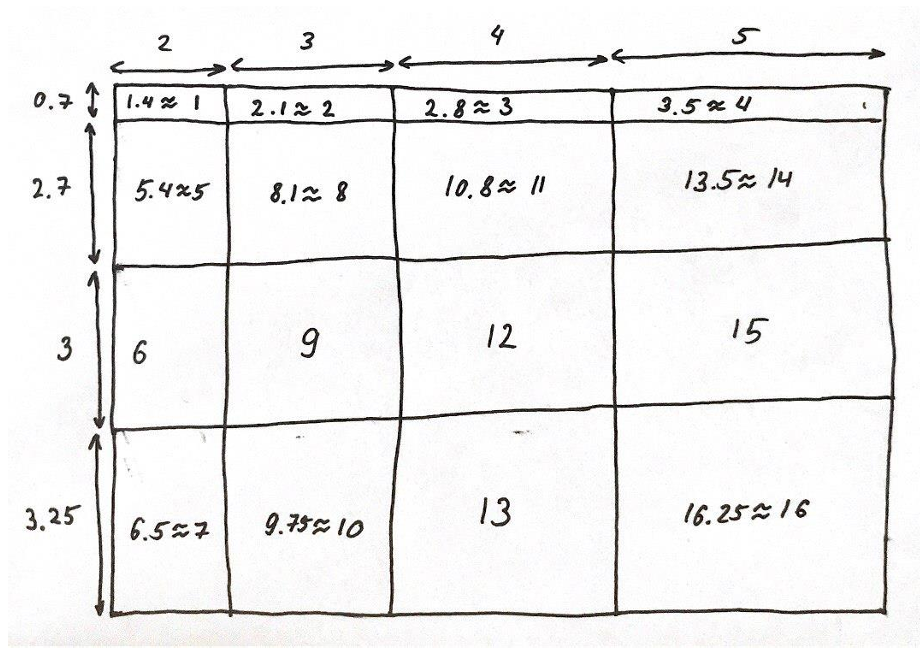 2 3 4 5
0.7 1.4≈ 1 2.1≈ 2 2.8≈3 3.5≈4
2.7 5.4≈5 8.1≈ 8 10.8≈ 11 13.5≈ 14
3 6 9 12 15
3.25 6.5≈7 9.75≈10 13 16.25≈16